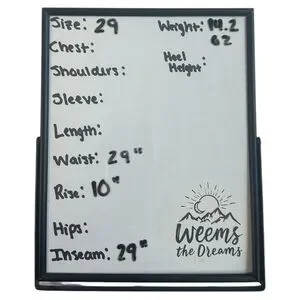 Size: 29
Weight: 14.2
oz
Chest:
Heel
Height:
Shoulders:
Sleeve:
Length:
Waist: 29"
Rise: 10"
Hips:
Inseam: 29"
Weems
the Dreams